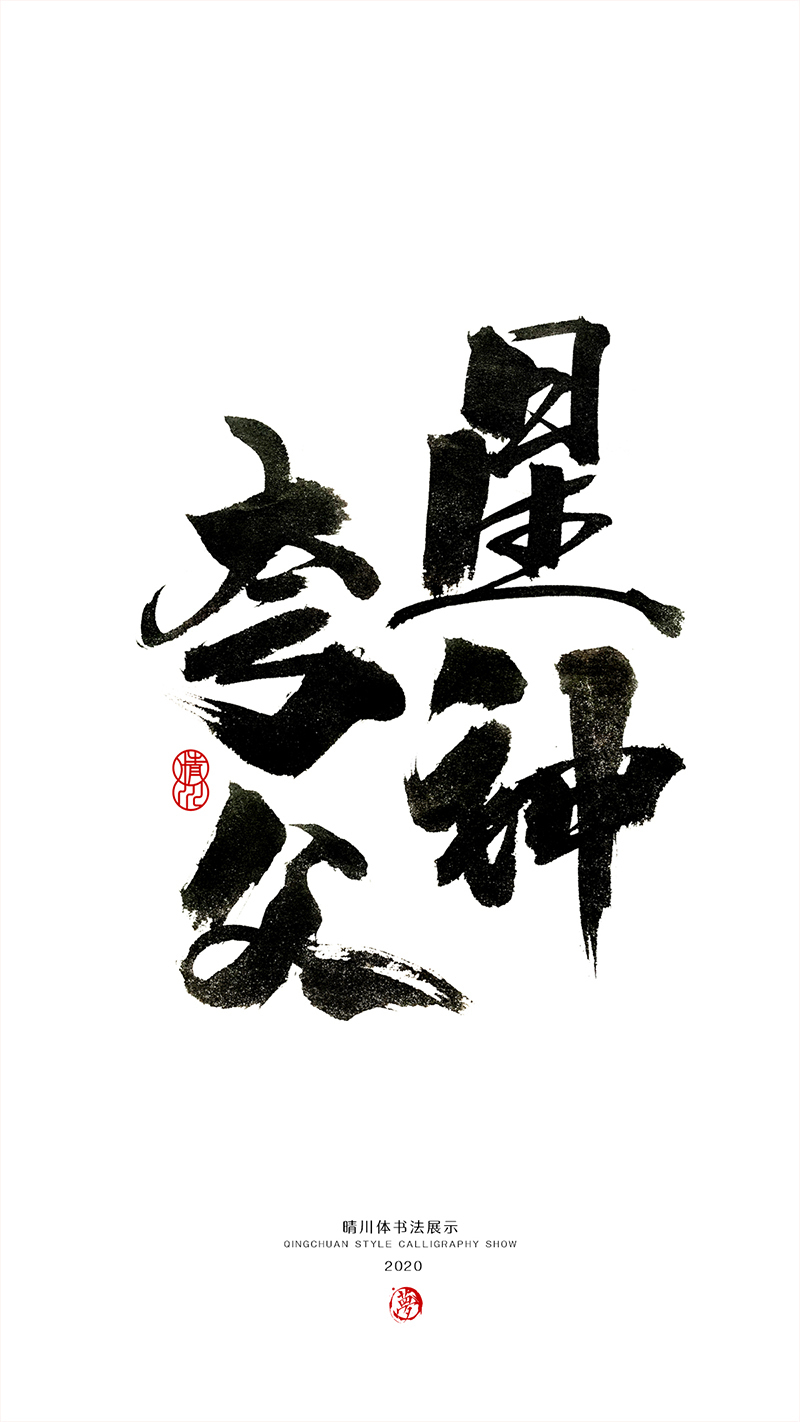 星神
夸父
晴川
晴川体书法展示
QINGCHUAN STYLE CALLIGRAPHY SHOW
2020
夢